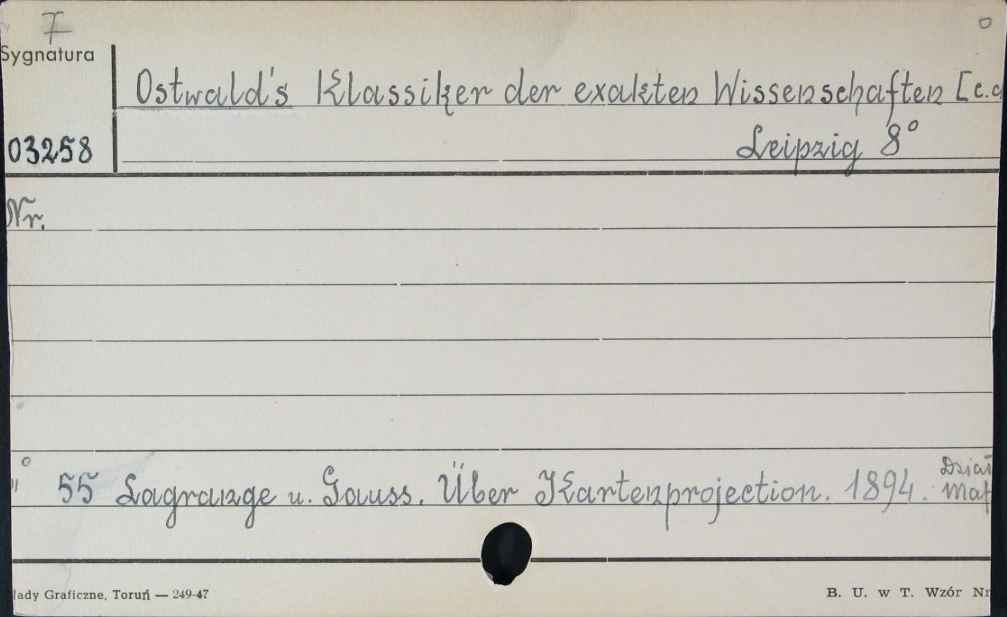 7
Sygnatura
Ostwald's Klassiker der exakten Wissenschaften [c.d
03258
Leipzig 8°
Nr.
" 55 Lagrange u. Gauss. Über Kartenprojection. 1894. Dział
Mat
łady Graficzne, Toruń — 249-47
B. U. w T. Wzór Nr